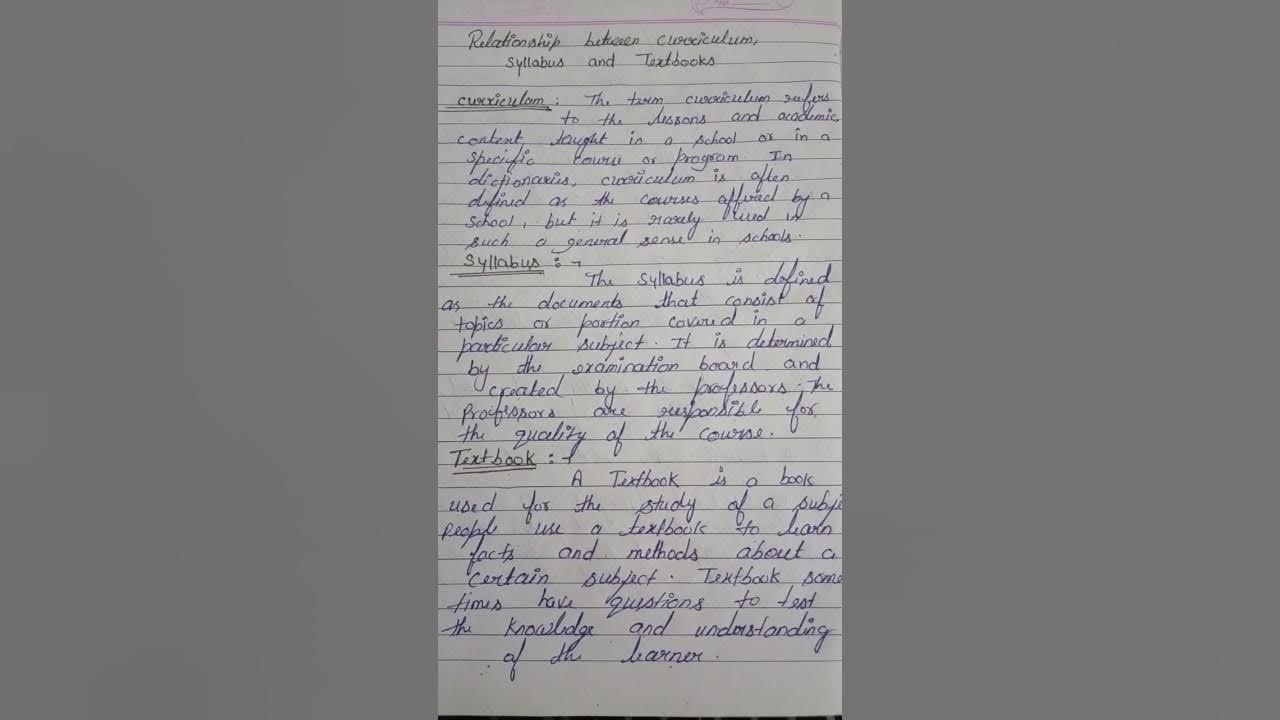 Relationship between curriculum,
Syllabus and Textbooks
curriculum : The term curriculum refers
to the lessons and academic
content taught in a school or in a
specific course or program. In
dictionaries, curriculum is often
defined as the courses offered by a
school, but it is rarely used in
such a general sense in schools.
Syllabus :-
The Syllabus is defined
as the documents that consist of
topics or portion covered in a
particular subject. It is determined
by the examination board and
created by the professors. The
Professors are responsible for
the quality of the course.
Textbook :-
A Textbook is a book
used for the study of a subje
People use a textbook to learn
facts and methods about a
certain subject. Textbook some
times have questions to test
the knowledge and understanding
of the learner.